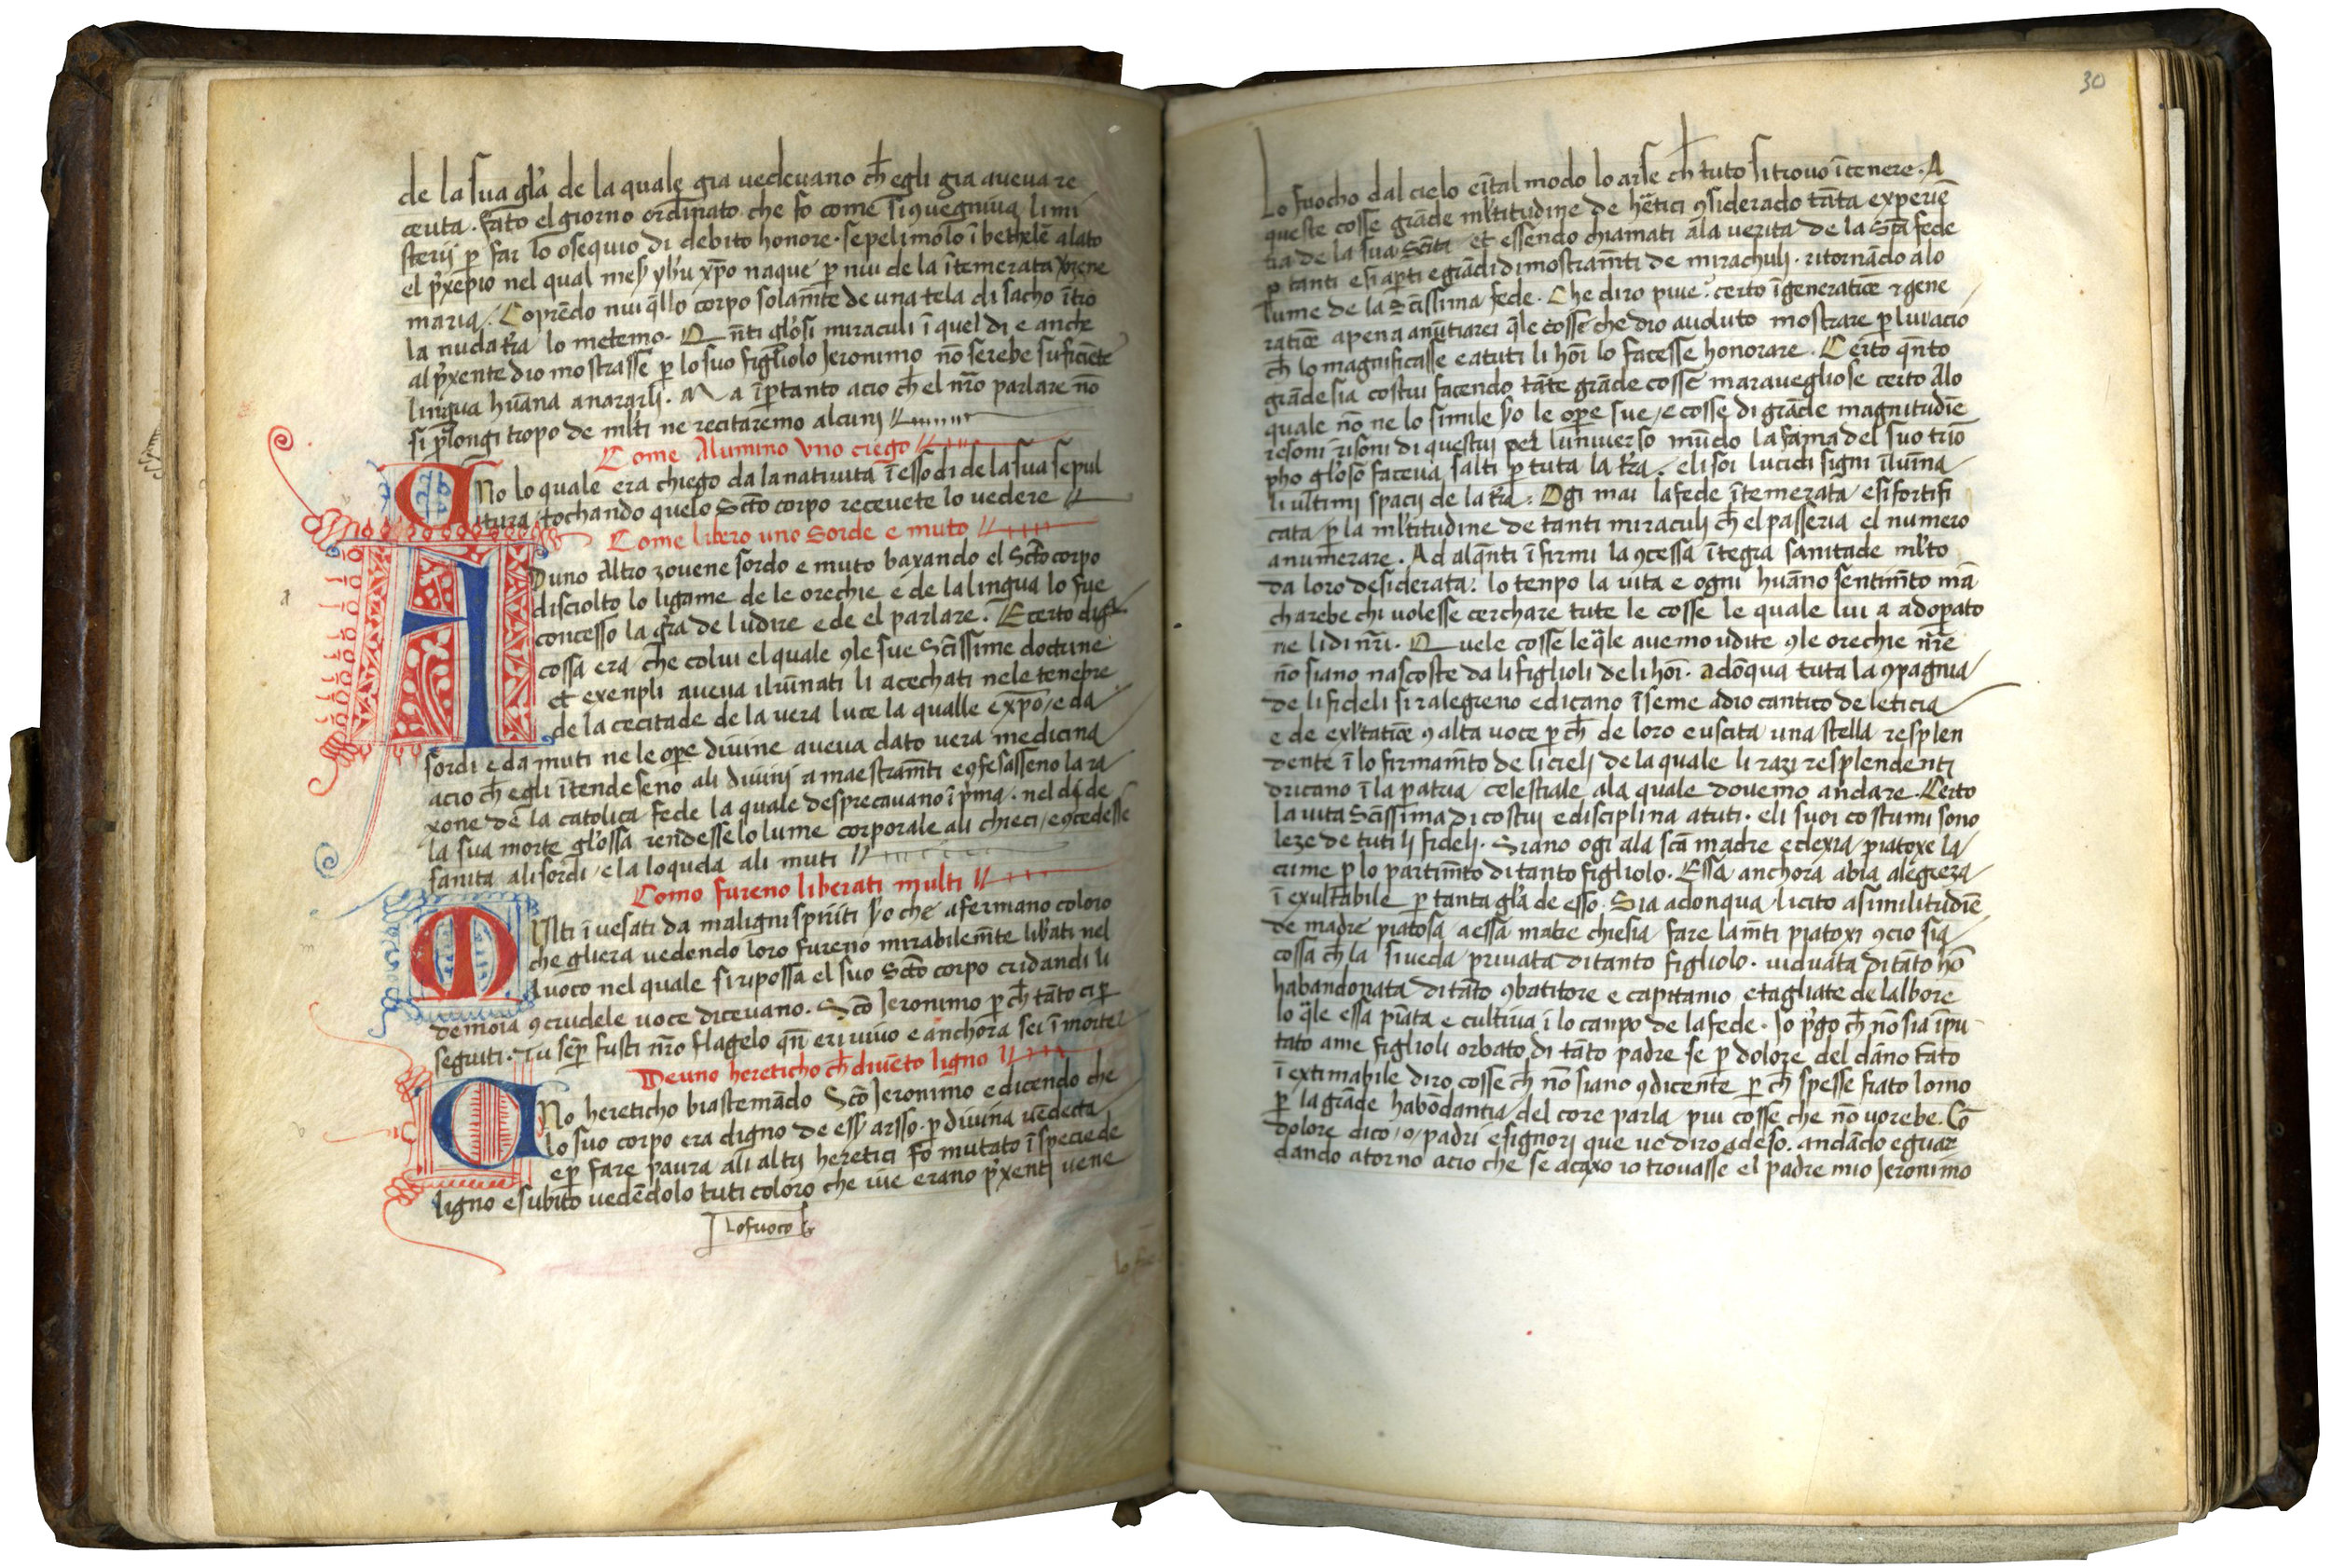 de la sua gl'a de la quale gia uedeuano ch̄ egli gia aueua re
ceuta. fato el giorno ordinato che fo come si 9uegniua li mi
sterij p̄ far lo osequio di debito honore. sepelimolo ī bethelē alato
el p'xepio nel qual mes' yh'u xp̄o naque p̄ nui de la ītemerata v'gene
maria. Coprēdo nui q̄llo corpo solam̄te de una tela di sacho ītro
la nuda t'ra lo metemo. Q nti gl'osi miraculi ī quel di e anche
al p'xente dio mostrasse p̄ lo suo figliolo Jeronimo nō serebe suficiēte
lingua hūana anararli. Ma īp̄tanto acio ch̄ el nr̄o parlare nō
si p̄longi tropo de ml'ti ne recitaremo alcuni
Come Alumino vno ciego
No lo quale era chiego da la natiuita ī esso di de la sua sepul
tura tochando quelo Sct̄o corpo receuete lo uedere
Come libero uno Sorde e muto
Duno Altro zouene sordo e muto baxando el Sct̄o corpo
disciolto lo ligame de le orechie e de la lingua lo fue
concesso la gr̄a de ludire e de el parlare. E certo dig
cossa era che colui el quale 9le sue Sc̄issime doctrine
et exenpli aueua ilūinati li acechati nele tenebre
de la cecitade de la uera luce la qualle e xp̄o / e da
sordi e da muti ne le ope diuine aueua dato uera medicina
acio ch̄ egli ītendeseno ali diuini amaestram̄ti e 9fesasseno la ra
xone de la catolica fede la quale desprecauano ī p'ma. nel di de
la sua morte gl'ossa rendesse lo lume corporale ali chieci / e 9cedesse
sanita ali sordi / e la loquela ali muti
Como fureno liberati multi
Vlti ī uesati da maligni spiriti v'o che afermano coloro
che gliera uedendo loro fureno mirabilem̄te lib'ati nel
luoco nel quale si ripossa el suo Sct̄o corpo cridandi li
demoia 9 crudele uoce diceuano. Sc̄o Jeronimo p̄ ch̄ tāto ci p̄
seguiti. Tu semp̄ fusti nr̄o flagelo qn̄ eri uiuo e anchora sei ī morte
De uno hereticho ch̄ diuēto ligno
No hereticho biastemādo Sc̄o Jeronimo e dicendo che
lo suo corpo era digno de ess' arsso. p̄ diuina uēdecta
e p̄ fare paura ali altri heretici fo mutato ī specie de
ligno e subito uedēdolo tuti coloro che iue erano p'xenti uene
Lo fuoco
30
Lo fuocho dal cielo e ī tal modo lo arse ch̄ tuto si trouo ī cenere. A
queste cosse grāde ml'titudine de h'etici 9siderado tāta experiē
tia de la sua Sc̄ita et essendo chiamati ala uerita de la Sct̄a fede
p̄ tanti e si ap̄ti e grādi dimostram̄ti de mirachuli. ritornādo alo
lume de la Sc̄issima fede. Che diro piue? certo ī generatiōe 7 gene
ratiōe apena anūtiarei q̄le cosse che dio auoluto mostrare p̄ lui acio
ch̄ lo magnificasse e atuti li hoī lo facesse honorare. Certo qn̄to
grāde sia costui facendo tāte grāde cosse marauegliose certo Alo
quale nō ne lo simile v'o le ope sue / e cosse di grāde magnitudīe
resoni risoni di questui per luniuerso mūdo la fama del suo trio
pho gl'oso faceua salti p̄ tuta la t'ra. e li soi lucidi signi ilūina
li ultimi spacij de la t'ra. Ogi mai la fede ītemerata / e si fortifi
cata / p̄ la ml'titudine de tanti miraculi ch̄ el passeria el numero
anumerare. Ad alqn̄ti īfirmi la 9cessa ītegra sanitade ml'to
da loro desiderata: lo tenpo la uita e ogni huāno sentim̄to mā
charebe chi uolesse cerchare tute le cosse le quale lui a adopato
ne li di nr̄i. Quele cosse le q̄le auemo udite 9le orechie nr̄e
nō siano nascoste da li figlioli de li hoī. adōqua tuta la 9pagnia
de li fideli si ralegreno e dicano īseme adio cantico de leticia
e de exl'tatiōe 9 alta uoce p̄ ch̄ de loro e uscita una stella resplen
dente ī lo firmam̄to de li cieli de la quale li razi resplendenti
dricano ī la patria celestiale ala quale douemo andare. Certo
la uita Sc̄issima di costui e disciplina atuti. e li suoi costumi sono
leze de tuti li fideli. Siano ogi ala sc̄a madre eclexia piatoxe la
crime p̄ lo partim̄to di tanto figliolo. Essa anchora abia alegreza
ī exultabile p̄ tanta gl'a de esso. Sia adonqua licito asimilitudīe
de madre piatosa aessa matre chiesia fare lam̄ti piatoxi 9cio sia
cossa ch̄ la si ueda priuata di tanto figliolo. uiduata di tāto hō
habandonata di tāto 9batitore e capitanio e tagliate de lalbore
lo q̄le essa piāta e cultiua ī lo canpo de la fede. Jo p'go ch̄ nō sia īpu
tato ame figlioli orbato di tāto padre se p̄ dolore del dāno fato
ī extimabile diro cosse ch̄ nō siano 9dicente p̄ ch̄ spesse fiato lomo
p̄ la grāde habōdantia del core parla piu cosse che nō uorebe. Cō
dolore dico / o / padri e signori que ue diro adeso. andādo e guar
dando atorno acio che se acaxo io trouasse el padre mio Jeronimo